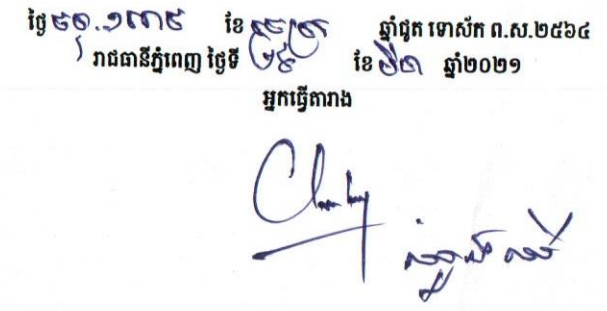 ថ្ងៃ ចន្ទ ១រោច ខែ ឆ្នាំជូត ទោស័ក ព.ស.២៥៦៤
រាជធានីភ្នំពេញ ថ្ងៃទី ២៩ ខែ មីនា ឆ្នាំ២០២១
អ្នកធ្វើតារាង